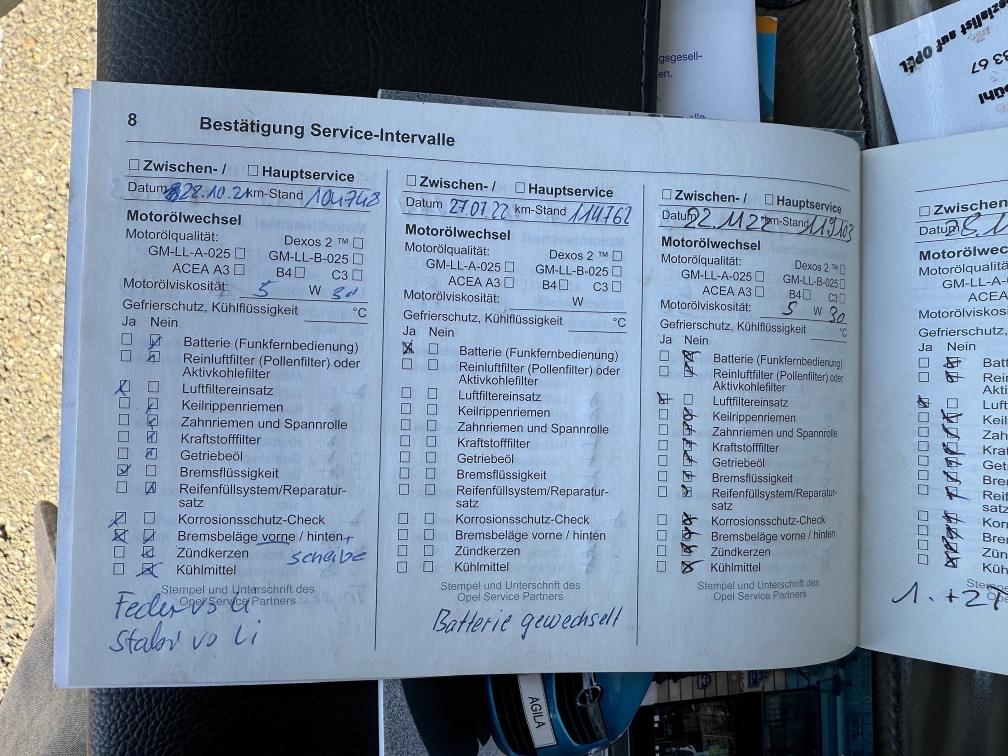 8 Bestätigung Service-Intervalle
Zwischen- / Hauptservice
Datum 28.10.21 km-Stand 104748
Motorölwechsel
Motorölqualität: Dexos 2 ™
GM-LL-A-025 GM-LL-B-025
ACEA A3 B4 C3
Motorölviskosität: 5 W 30
Gefrierschutz, Kühlflüssigkeit °C
Ja Nein
Batterie (Funkfernbedienung)
Reinluftfilter (Pollenfilter) oder
Aktivkohlefilter
Luftfiltereinsatz
Keilrippenriemen
Zahnriemen und Spannrolle
Kraftstofffilter
Getriebeöl
Bremsflüssigkeit
Reifenfüllsystem/Reparatur-
satz
Korrosionsschutz-Check
Bremsbeläge vorne / hinten +
Zündkerzen scheibe
Kühlmittel
Stempel und Unterschrift des
Opel Service Partners
Feder vo Li
Stabi vo Li
Zwischen- / Hauptservice
Datum 27.01.22 km-Stand 114762
Motorölwechsel
Motorölqualität: Dexos 2 ™
GM-LL-A-025 GM-LL-B-025
ACEA A3 B4 C3
Motorölviskosität: W
Gefrierschutz, Kühlflüssigkeit °C
Ja Nein
Batterie (Funkfernbedienung)
Reinluftfilter (Pollenfilter) oder
Aktivkohlefilter
Luftfiltereinsatz
Keilrippenriemen
Zahnriemen und Spannrolle
Kraftstofffilter
Getriebeöl
Bremsflüssigkeit
Reifenfüllsystem/Reparatur-
satz
Korrosionsschutz-Check
Bremsbeläge vorne / hinten
Zündkerzen
Kühlmittel
Stempel und Unterschrift des
Opel Service Partners
Batterie gewechselt
Zwischen- / Hauptservice
Datum 22.11.22 km-Stand 119103
Motorölwechsel
Motorölqualität: Dexos 2 ™
GM-LL-A-025 GM-LL-B-025
ACEA A3 B4 C3
Motorölviskosität: 5 W 30
Gefrierschutz, Kühlflüssigkeit °C
Ja Nein
Batterie (Funkfernbedienung)
Reinluftfilter (Pollenfilter) oder
Aktivkohlefilter
Luftfiltereinsatz
Keilrippenriemen
Zahnriemen und Spannrolle
Kraftstofffilter
Getriebeöl
Bremsflüssigkeit
Reifenfüllsystem/Reparatur-
satz
Korrosionsschutz-Check
Bremsbeläge vorne / hinten
Zündkerzen
Kühlmittel
Stempel und Unterschrift des
Opel Service Partners
Zwischen-
Datum
Motorölwec
Motorölqualit
GM-LL-A
ACEA A
Motorölviskosi
Gefrierschutz,
Ja Nein
Batt
Rein
Akti
Luft
Keil
Zah
Kra
Get
Bre
Reif
satz
Kor
Bre
Zün
Küh
Stemp
1. + 2
gsgesell-
en.
ezialist auf OPEL
33 67
bühl
AGILA